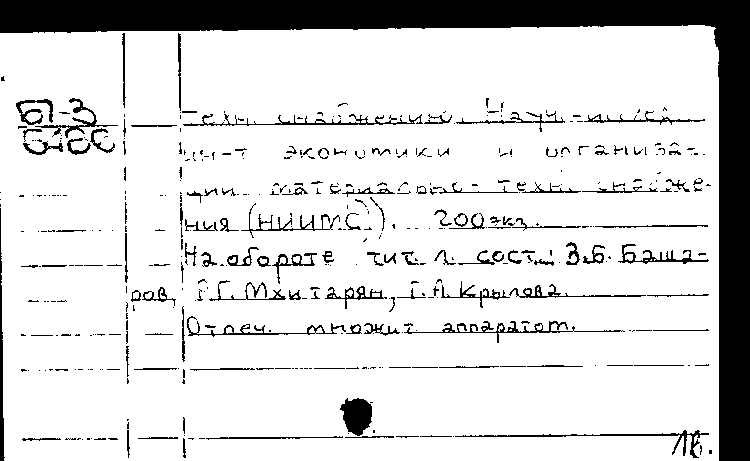 Б7-3
6186
техн. снабжению. Науч.-исслед.
ин-т экономики и организа-
ции материально-техн. снабже-
ния (НИИМС). 200 экз.
На обороте тит. л. сост.: З.Б. Баша-
ров, Р.Г. Мхитарян, Г.А. Крылова.
Отпеч. множит аппаратом.
1в.